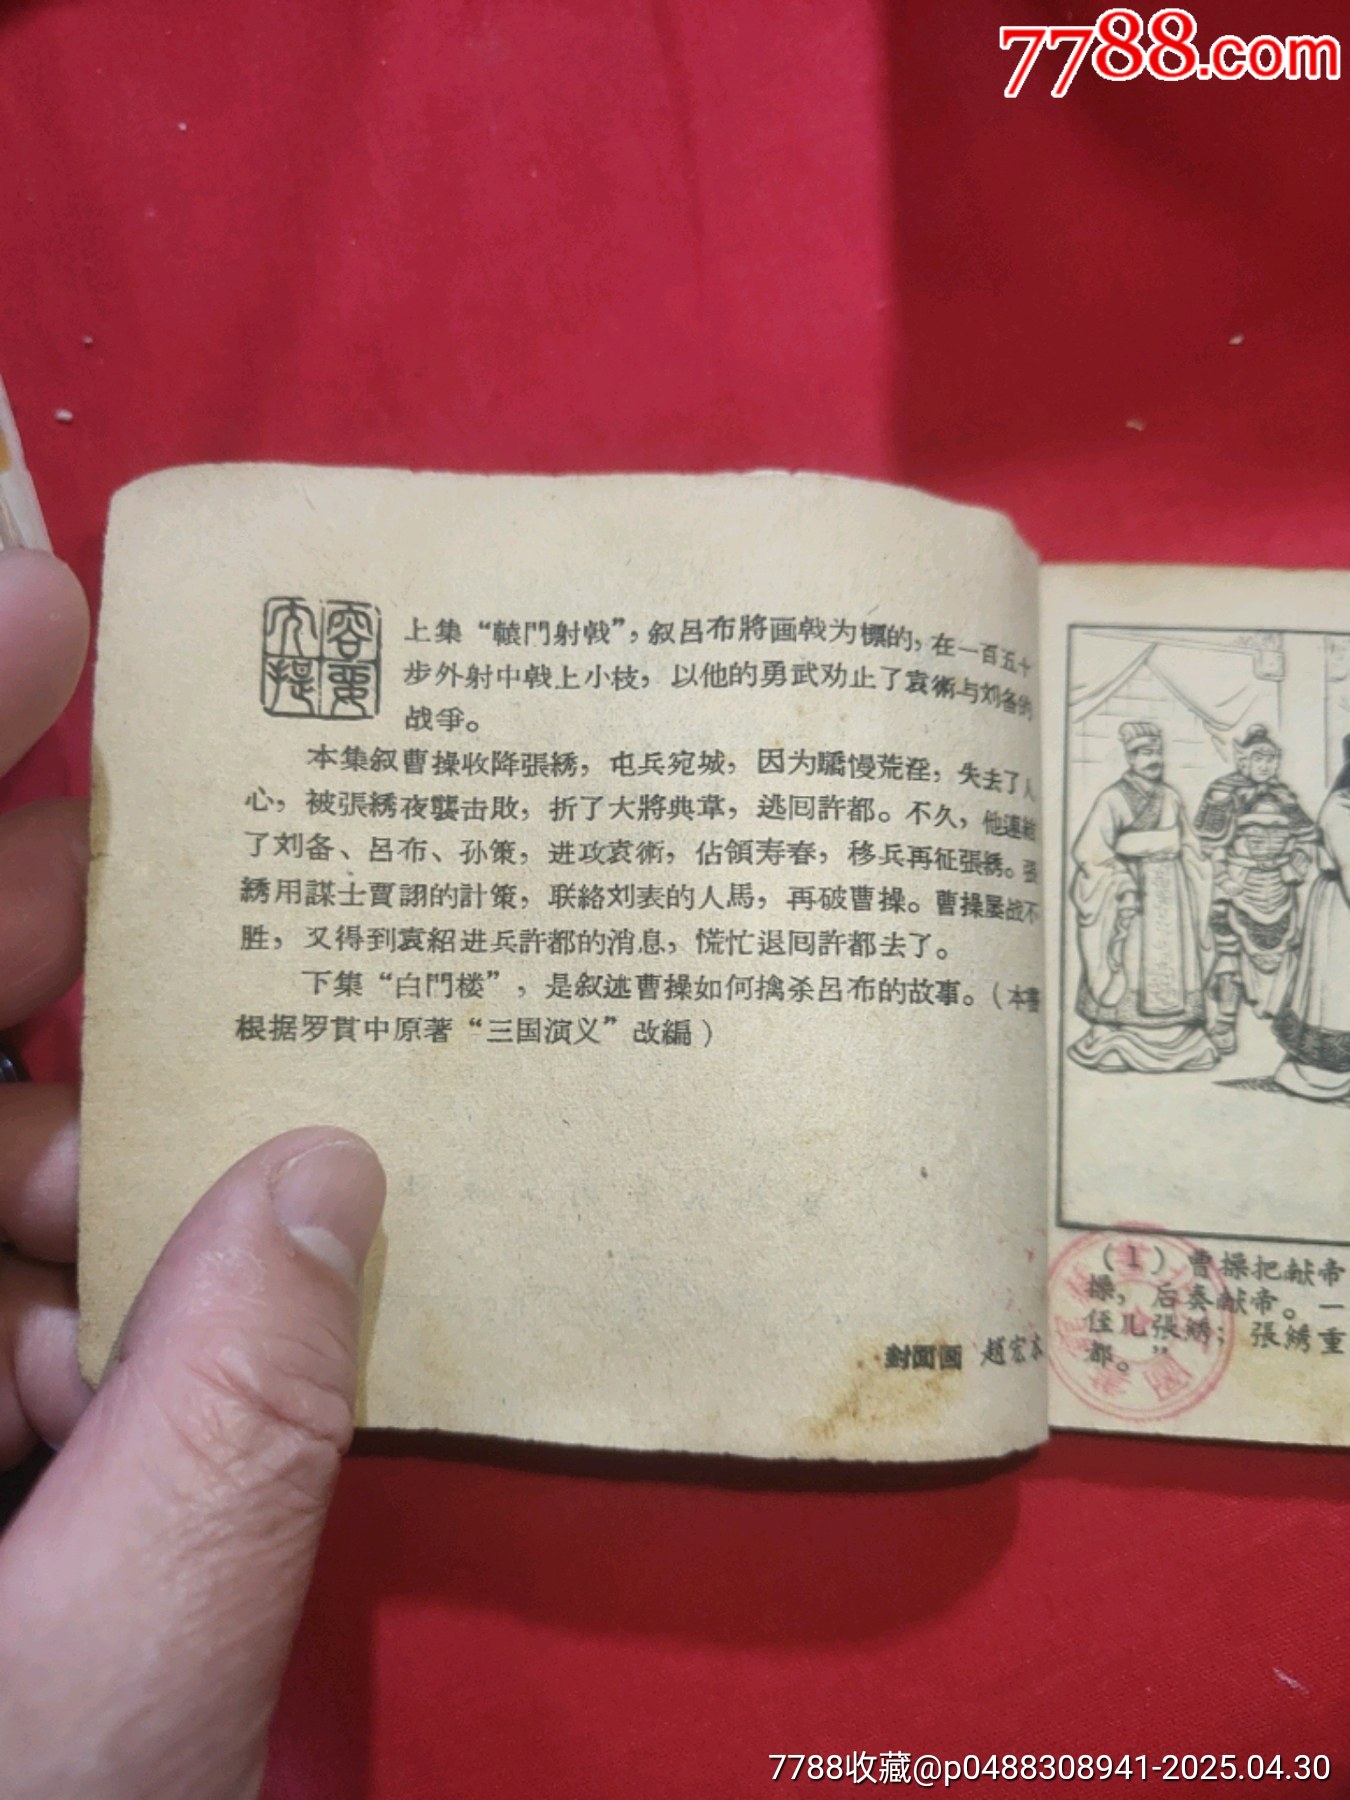 7788.com
内容
提要
上集“轅門射戟”，叙呂布將画戟为標的，在一百五十
步外射中戟上小枝，以他的勇武劝止了袁術与刘备的
战爭。
本集叙曹操收降張綉，屯兵宛城，因为驕慢荒淫，失去了人
心，被張綉夜襲击敗，折了大將典韋，逃囘許都。不久，他連絡
了刘备、呂布、孙策，进攻袁術，佔領寿春，移兵再征張綉。張
綉用謀士賈詡的計策，联絡刘表的人馬，再破曹操。曹操屡战不
胜，又得到袁紹进兵許都的消息，慌忙退囘許都去了。
下集“白門楼”，是叙述曹操如何擒杀呂布的故事。（本書
根据罗貫中原著“三国演义”改編）
封面画 趙宏本
（1）曹操把献帝
操，后奏献帝。一
侄儿張綉；張綉重
都。”
7788收藏@p0488308941-2025.04.30